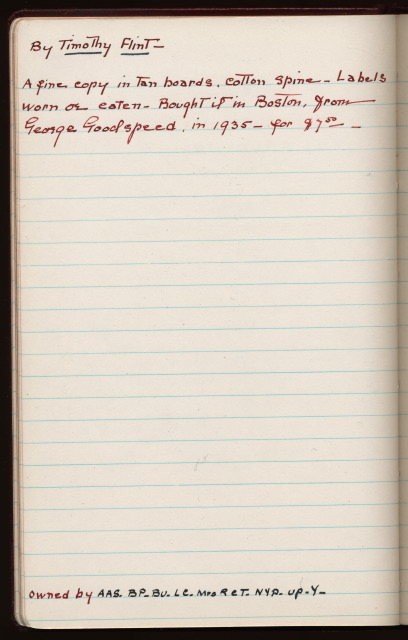 By Timothy Flint—
A fine copy in Tan boards. cotton spine - Labels
worn or eaten - Bought it in Boston, from
George Goodspeed. in 1935 - for $7.50 -
Owned by AAS. BP. BU. LC. Mrs R C T. NYP. UP. Y-